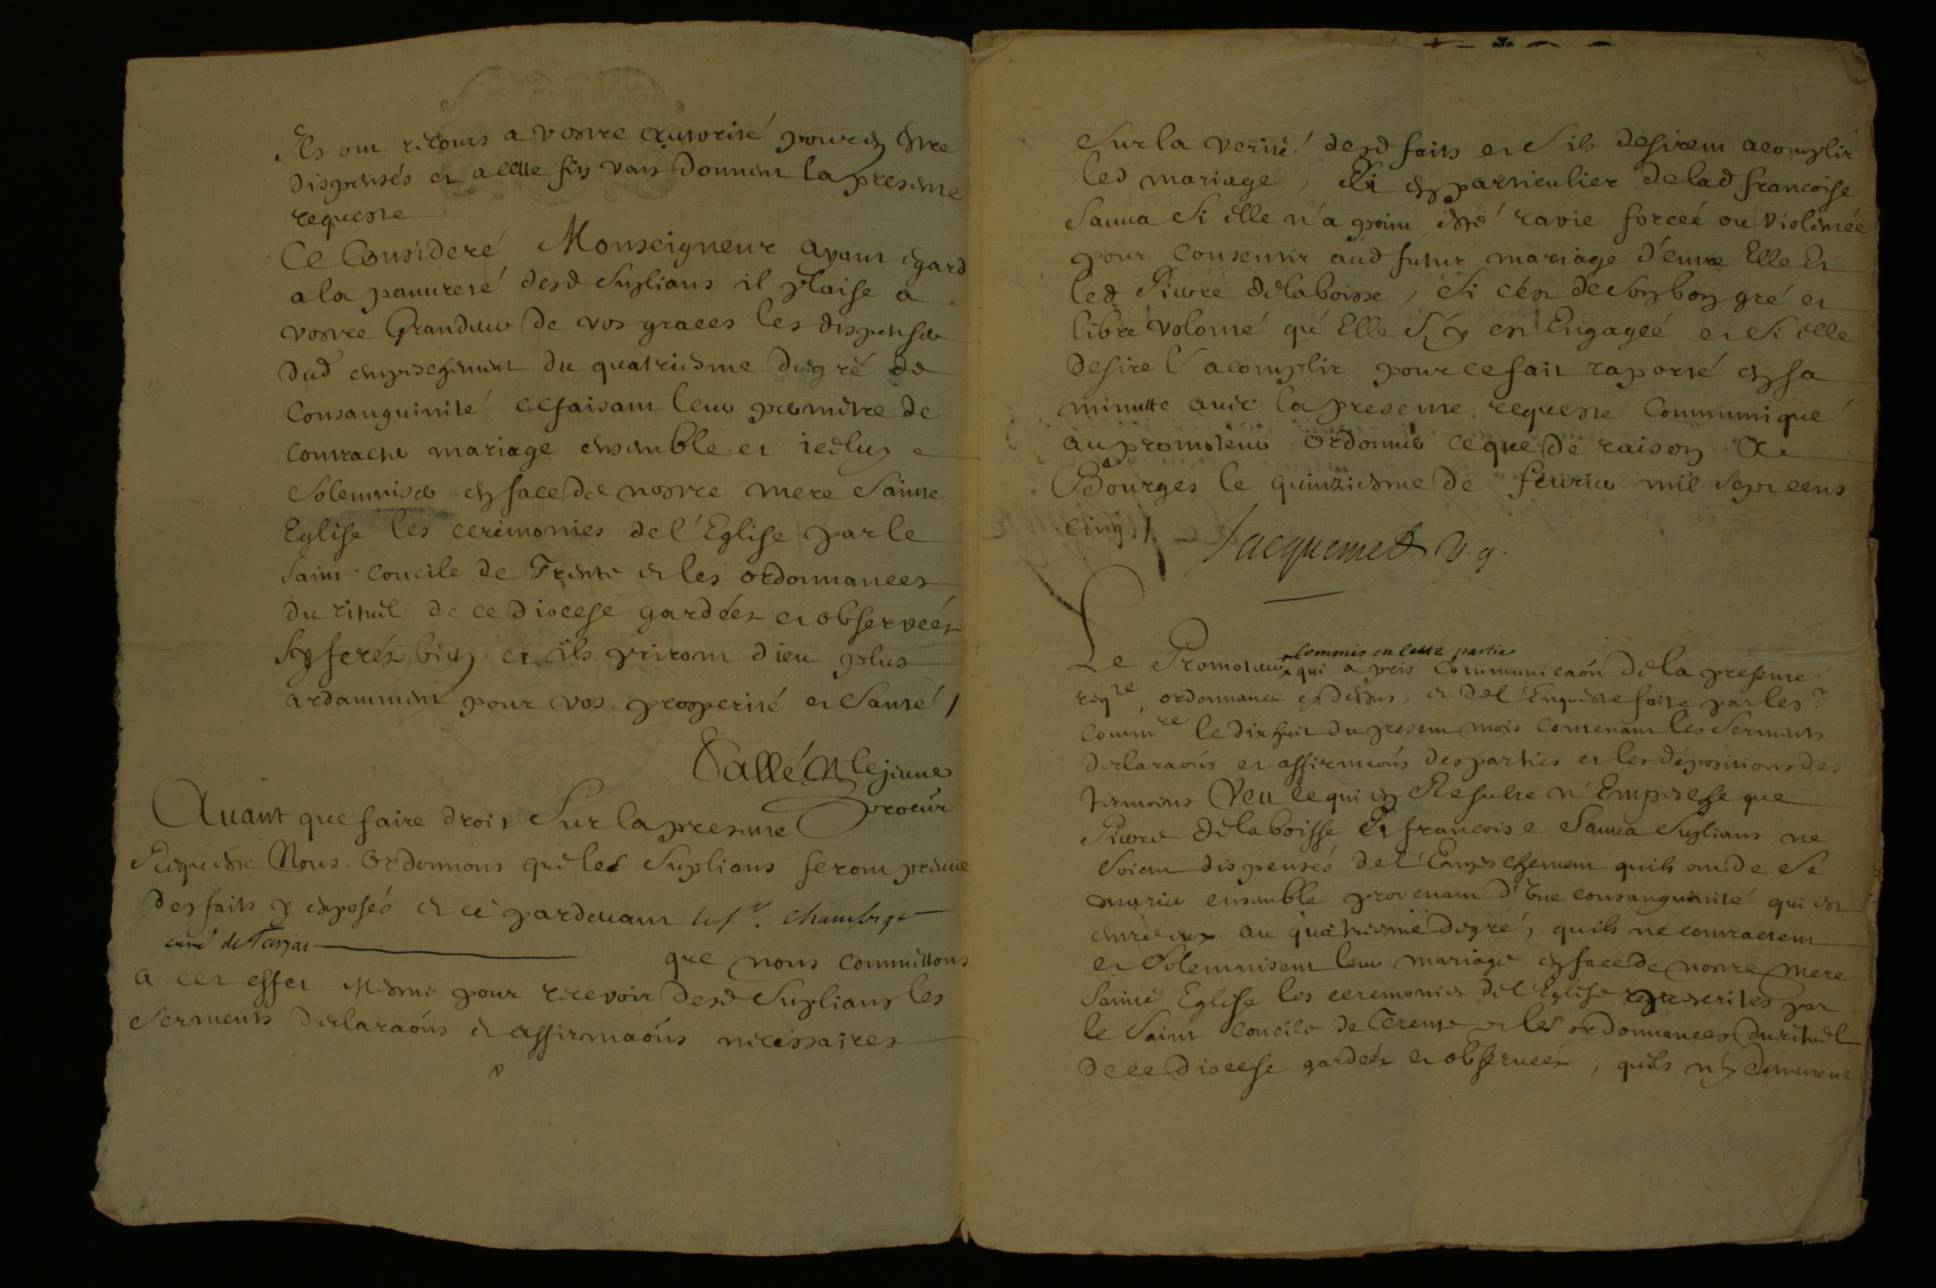 Ils ont recours a vostre autorité pour en estre
dispensés et a cette fin vous donnent la presente
requeste
Ce Consideré Monseigneur ayant egard
a la pauureté desd Suplians il plaise a
vostre Grandeur de vos graces les dispenser
dud empeschement du quatriesme degré de
Consanguinité ce faisant leur permettre de
contracter mariage ensemble et icelluy
Solemniser en face de nostre mere Sainte
Eglise les ceremonies de l'Eglise par le
Saint concile de Trente et les ordonnances
du rituel de ce diocese gardées et observées
Sy ferés bien et ils priront dieu plus
ardamment pour vos prosperité et Santé /
Sallé lejeune
procur
Auant que faire droit Sur la presente
Requeste Nous Ordonnons que les Suplians feront preuue
des faits y exposés et ce pardeuant le Sr.
curé de
que nous commettons
a cet effet Mesme pour receuoir desd Suplians les
Serments declaraõns et affirmaõns necessaires
Sur la verité desd faits et Sils desirent acomplir
led mariage, Et en particulier de lad francoise
Sanua Si elle n'a point esté ravie forceé ou violentée
pour consentir aud futur mariage d'entre Elle Et
led Pierre delaboisse, Si c'est de Son bon gré et
libre volonté qu'Elle S'y est Engageé et Si elle
desire l'acomplir pour ce fait raporté en sa
minutte auec la presente requeste Communiqué
au promoteur ordonner ce que de raison A
Bourges le quinziesme de feurier mil Sept cens
cinq /.
Jacquemet v.g.
Commis en cette partie
Le Promoteur qui a pris Communicaõn de la presente
reqte, ordonnance cy dessus et de l'Enqueste faite par led
commre le dix huit du present mois contenant les Serments
declaraõns et affirmaõns des parties et les depositions des
tesmoins Veu ce qui en Resulte n'Empesche que
Pierre delaboisse Et francoise Sanua Suplians ne
Soient dispensés de l'Empeschement quils ont de Se
marier ensemble provenant d'Une consanguinité qui est
entre eux au quatriesme degré, quils ne contractent
et Solemnisent leur mariage en face de nostre mere
Sainte Eglise les ceremonies de l'Eglise prescrites par
le Saint Concile de Trente et les ordonnances du rituel
de ce diocese gardeés et obserueés, quils n'y demeurent